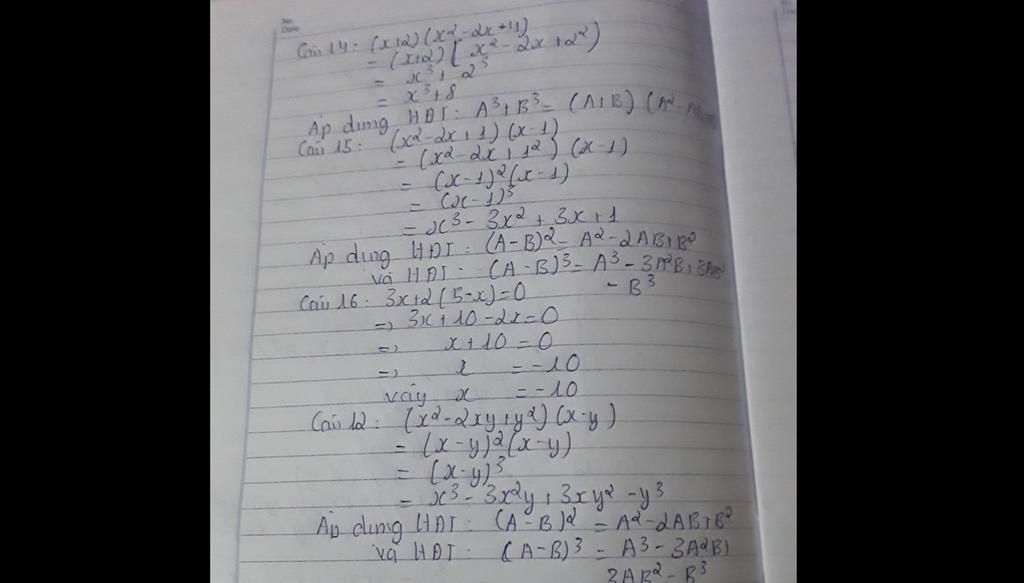 No.
Date
Câu 14: (x+2)(x²-2x+4)
= (x+2)(x²-2x+2²)
= x³+2³
= x³+8
Áp dụng HĐT: A³+B³= (A+B)(A²-
Câu 15: (x²-2x+1)(x-1)
= (x²-2x+1²)(x-1)
= (x-1)²(x-1)
= (x-1)³
= x³-3x²+3x+1
Áp dụng HĐT: (A-B)²= A²-2AB+B²
và HĐT: (A-B)³= A³-3A²B+3AB²
- B³
Câu 16: 3x+2(5-x)=0
=> 3x+10-2x=0
=> x+10=0
=> x =-10
vậy x =-10
Câu 12: (x²-2xy+y²)(x-y)
= (x-y)²(x-y)
= (x-y)³
= x³-3x²y+3xy²-y³
Áp dụng HĐT: (A-B)² = A²-2AB+B²
và HĐT: (A-B)³ = A³-3A²B+
3AB²-B³